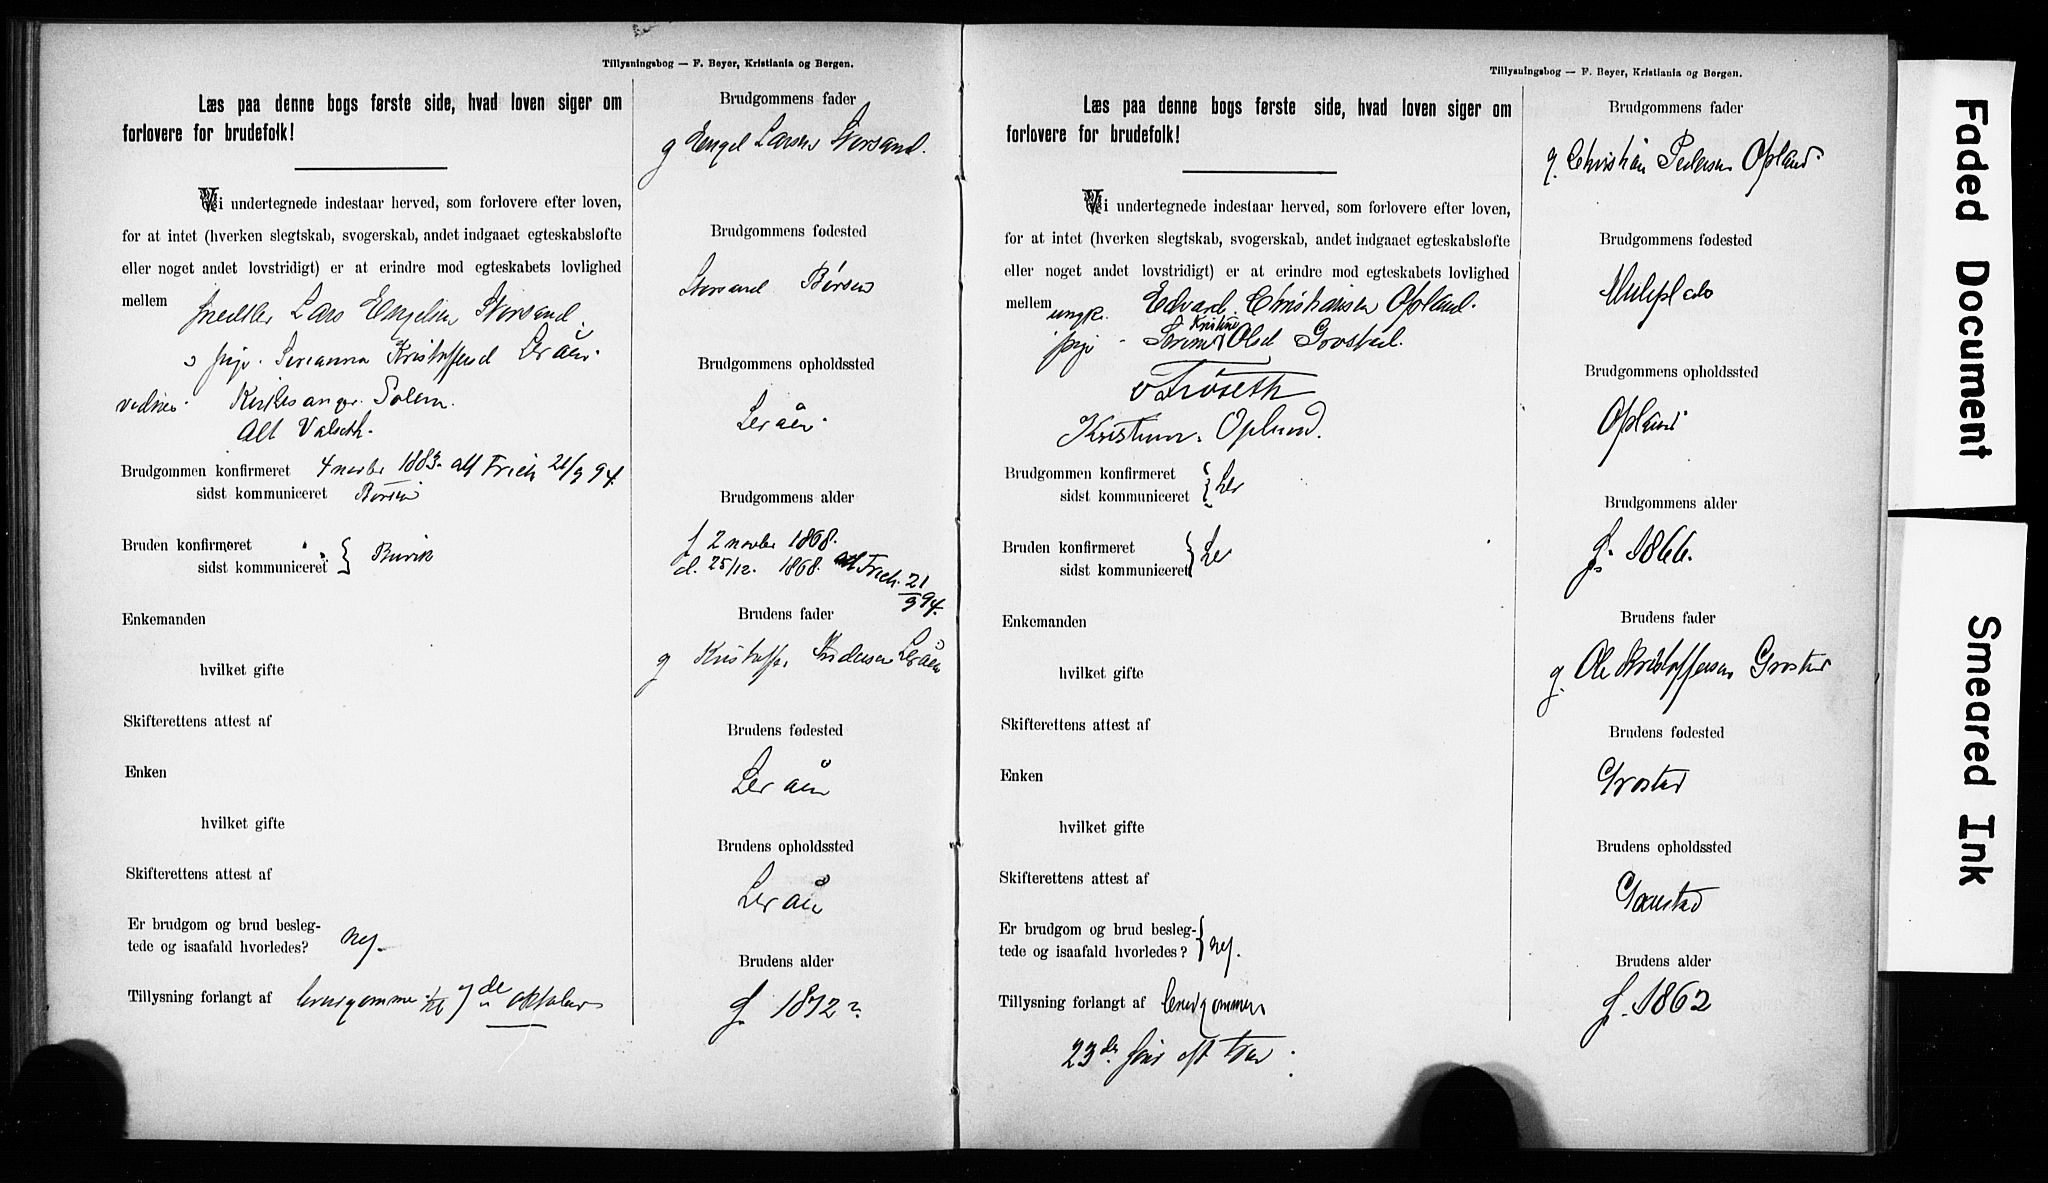 Tillysningsbog — F. Beyer, Kristiania og Bergen.
Læs paa denne bogs første side, hvad loven siger om
forlovere for brudefolk!
Vi undertegnede indestaar herved, som forlovere efter loven,
for at intet (hverken slegtskab, svogerskab, andet indgaaet egteskabsløfte
eller noget andet lovstridigt) er at erindre mod egteskabets lovlighed
mellem
Lars Engelsen Storsand.
pige. Serianna Kristoffersd Leråen.
Solem.
Alt Valseth.
Brudgommen konfirmeret 4 novbr 1883. att Frich 21/9 94.
sidst kommuniceret Børsen
Bruden konfirmeret
sidst kommuniceret } Buvik
Enkemanden
hvilket gifte
Skifterettens attest af
Enken
hvilket gifte
Skifterettens attest af
Er brudgom og brud besleg-
tede og isaafald hvorledes? nej.
Tillysning forlangt af brudgommen til 7de oktober
Brudgommens fader
g Engel Larsen Storsand.
Brudgommens fødested
Storsand Børsen
Brudgommens opholdssted
Leråen.
Brudgommens alder
f 2 novbr 1868.
d. 25/12. 1868. att Frich. 21/9 94.
Brudens fader
g Kristoffer Andersen Leråen
Brudens fødested
Leråen
Brudens opholdssted
Leråen
Brudens alder
f. 1872
Tillysningsbog — F. Beyer, Kristiania og Bergen.
Læs paa denne bogs første side, hvad loven siger om
forlovere for brudefolk!
Vi undertegnede indestaar herved, som forlovere efter loven,
for at intet (hverken slegtskab, svogerskab, andet indgaaet egteskabsløfte
eller noget andet lovstridigt) er at erindre mod egteskabets lovlighed
mellem
ungk. Edvard Christiansen Opland.
pige Kristine Olsd Grostad.
Frøseth
Opland.
Brudgommen konfirmeret
sidst kommuniceret } her
Bruden konfirmeret
sidst kommuniceret } her
Enkemanden
hvilket gifte
Skifterettens attest af
Enken
hvilket gifte
Skifterettens attest af
Er brudgom og brud besleg-
tede og isaafald hvorledes? } nej.
Tillysning forlangt af brudgommen
23de
Brudgommens fader
g. Christian Pedersen Opland.
Brudgommens fødested
Brudgommens opholdssted
Opland
Brudgommens alder
f. 1866.
Brudens fader
g. Ole Kristoffersen Grostad
Brudens fødested
Grostad
Brudens opholdssted
Brudens alder
f. 1862
Faded Document
Smeared Ink